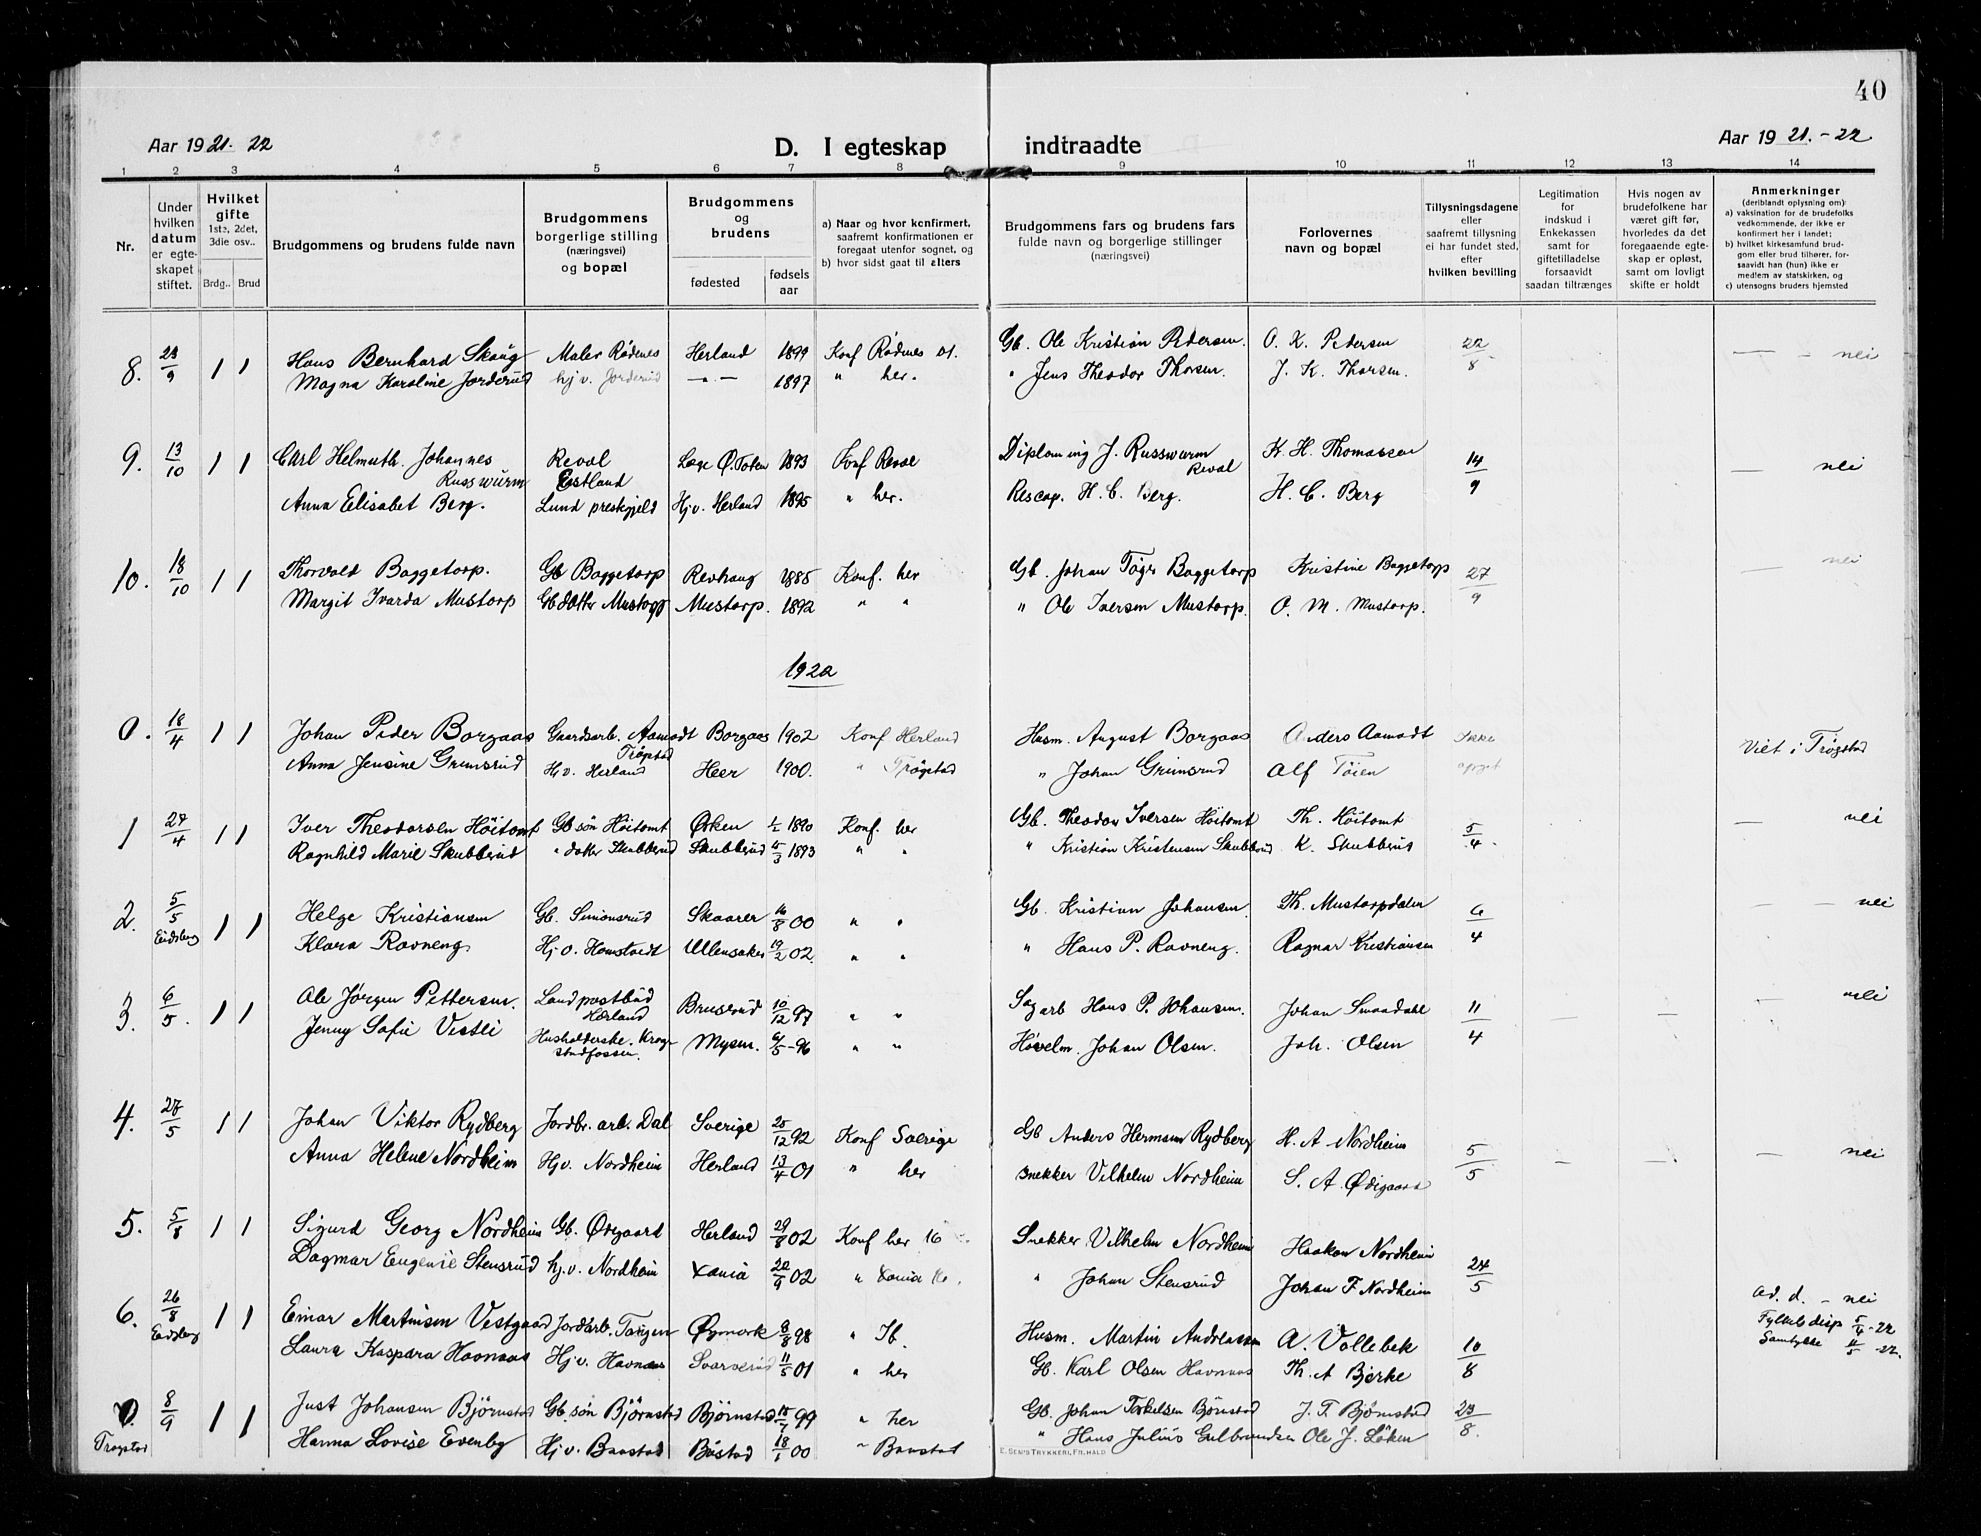 40
Aar 1921-22
D. I egteskap indtraadte
Aar 1921.-22
1 2 3 4 5 6 7 8 9 10 11 12 13 14
Nr.
Under hvilken datum er egteskapet stiftet.
Hvilket gifte 1ste, 2det, 3die osv..
Brdg.. Brud
Brudgommens og brudens fulde navn
Brudgommens borgerlige stilling (næringsvei) og bopæl
Brudgommens og brudens
fødested
fødsels aar
a) Naar og hvor konfirmert, saafremt konfirmationen er foregaat utenfor sognet, og
b) hvor sidst gaat til alters
Brudgommens fars og brudens fars fulde navn og borgerlige stillinger (næringsvei)
Forlovernes navn og bopæl
Tillysningsdagene eller saafremt tillysning ei har fundet sted, efter hvilken bevilling
Legitimation for indskud i Enkekassen samt for giftetilladelse forsaavidt saadan tiltrænges
Hvis nogen av brudefolkene har været gift før, hvorledes da det foregaaende egteskap er opløst, samt om lovligt skifte er holdt
Anmerkninger (deriblandt oplysning om)
a) vaksination for de brudefolks vedkommende, der ikke er konfirmert her i landet;
b) hvilket kirkesamfund brudgom eller brud tilhører, forsaavidt han (hun) ikke er medlem av statskirken, og
c) utensogns bruders hjemsted
8. 23/9 1 1 Hans Bernhard Skaug Maler Rødenes Herland 1899 Konf Rødenes 01. Gb. Ole Kristian Pedersen. O. K. Pedersen 22/8 — - nei
Magna Karoline Jorderud hj v. Jorderud —"— 1897 " her. " Jens Theodor Thorsen. J. K. Thorsen.
9. 13/10 1 1 Carl Helmuth Johannes Russwurm Reval Estland Læge Ø. Toten 1893 Konf Reval Diplom ing J. Russwurm Reval K. H. Thomassen 14/9 — nei
Anna Elisabet Berg. Lund prestgjeld Hj v. Herland 1895 " her. Rescap. H. C. Berg. H. C. Berg
10. 18/10 1 1 Thorvald Baggetorp. Gb Baggetorp Revhaug 1885 Konf. her Gb. Johan Tøger Baggetorp Kristine Baggetorp 27/9 — nei
Margit Ivarda Mustorp Gb datter Mustorp Mustorp. 1892 " " " Ole Iversen Mustorp. O. M. Mustorp.
1922
0. 18/4 1 1 Johan Peder Borgaas Gaardsarb. Aamodt Trøgstad Borgaas 1902 Konf Herland Husm. August Borgaas Anders Aamodt Ikke opgit Viet i Trøgstad
Anna Jensine Grimsrud Hj v. Herland Heer 1900. " Trøgstad " Johan Grimsrud Alf Tøien
1 27/4 1 1 Iver Theodorsen Höitomt Gb søn Höitomt Ørken 1/2 1890 Konf. her Gb. Theodor Iversen Höitomt Th. Höitomt 5/4. — nei
Ragnhild Marie Skubberud " datter Skubberud Skubberud 1893 " " " Kristian Kristensen Skubberud K. Skubberud
2. 5/5 Eidsberg 1 1 Helge Kristiansen Gb. Simonsrud Skaarer 16/8 00 " " Gb. Kristian Johansen. Th. Mustorpdalen 6/4 — — nei
Klara Ravneng Hj v. Homstvedt Ullensaker 19/2 02. " " " Hans P. Ravneng. Ragnar Kristiansen
3. 6/5. 1 1 Ole Jørgen Pettersen. Landpostbud Herland Bruserud 10/12 97 " " Sagarb Hans P. Johansen. Johan Smaadahl 11/4 — — — nei
Jenny Sofie Vestli Husholderske. Krogstadfossen. Mysen. 6/5-96 " " Høvelm. Johan Olsen. Joh. Olsen
4. 27/5 1 1 Johan Viktor Rydberg Jordbr. arb. Dal Sverige 25/12 92 Konf Sverige Gb Anders Herman Rydberg H. A Nordheim 5/5 — — — nei
Anna Helene Nordheim Hj v. Nordheim Herland 13/4 01 " her Snekker Vilhelm Nordheim S. A. Ødigaard
5. 5/8 1 1 Sigurd Georg Nordheim Gb. Ødegaard Herland 29/8 02 Konf her 16 Snekker Vilhelm Nordheim Haakon Nordheim 24/5
Dagmar Eugenie Stensrud hj. v. Nordheim Xania 20/9 02 " Xania 16. " Johan Stensrud Johan F. Nordheim
6. 26/8 Eidsberg 1 1 Einar Martinsen Vestgaard Jordarb. Tangen Øymark 8/8 98 " Ib. Husm. Martin Andreassen A. Vollebek 10/8 Ad. d. - nei
Fylkets disp 5/4-22
Samtykke 4/5 -22.
Laura Kaspara Havnaas Hj v. Havnaas Svarverud 11/5 01 " her Gb. Karl Olsen Havnaas Th. A Bjerke
0 Trøgstad 8/9 1 1 Just Johansen Bjørnstad Gb. søn Bjørnstad Bjørnstad 15/7 99 " her Gb. Johan Torkelsen Bjønstad J. T. Bjørnstad 23/8.
Hanna Lovise Evenby Hj v. Baastad Båstad 18/1 00 " Baastad " Hans Julius Gulbrandsen Ole J. Løken
E. SEM'S TRYKKERI, FR.HALD